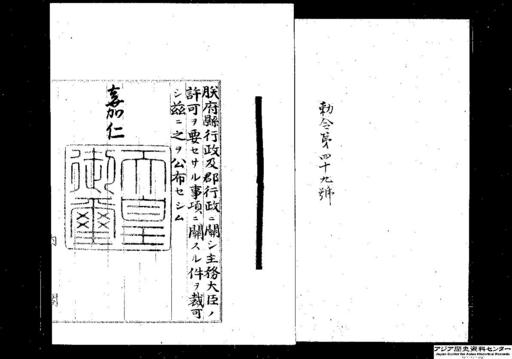 勅令第四十九號
朕府縣行政及郡行政ニ關シ主務大臣ノ
許可ヲ要セサル事項ニ關スル件ヲ裁可
シ茲ニ之ヲ公布セシム
嘉仁
天皇
御璽
内閣
アジア歴史資料センター
Japan Center for Asian Historical Records